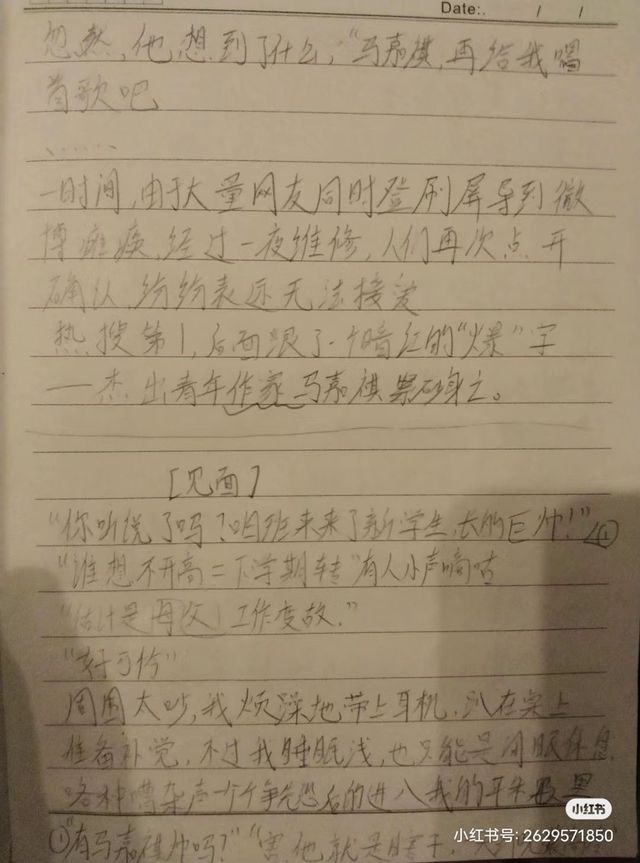 Date: / /
忽然,他想到了什么,"马嘉祺,再给我唱
首歌吧
……
一时间,由于大量网友同时登刷屏导到微
博瘫痪,经过一夜维修,人们再次点开
确认,纷纷表还无法接受
热搜第1,后面跟了一个暗红的"爆"字
——杰出青年作家马嘉祺
[见面]
"你听说了吗?咱班来了新学生,长的巨帅!"①
"谁想不开高二下学期转"有人小声嘀咕
"估计是母父工作变故."
"好可怜"
周围太吵,我烦躁地带上耳机,趴在桌上
准备补觉,不过我睡眠浅,也只能是闭眼休息
各种嘈杂声一个个争先恐后的进入我的耳朵里
①"有马嘉祺帅吗?""害,他就是
小红书
小红书号: 2629571850